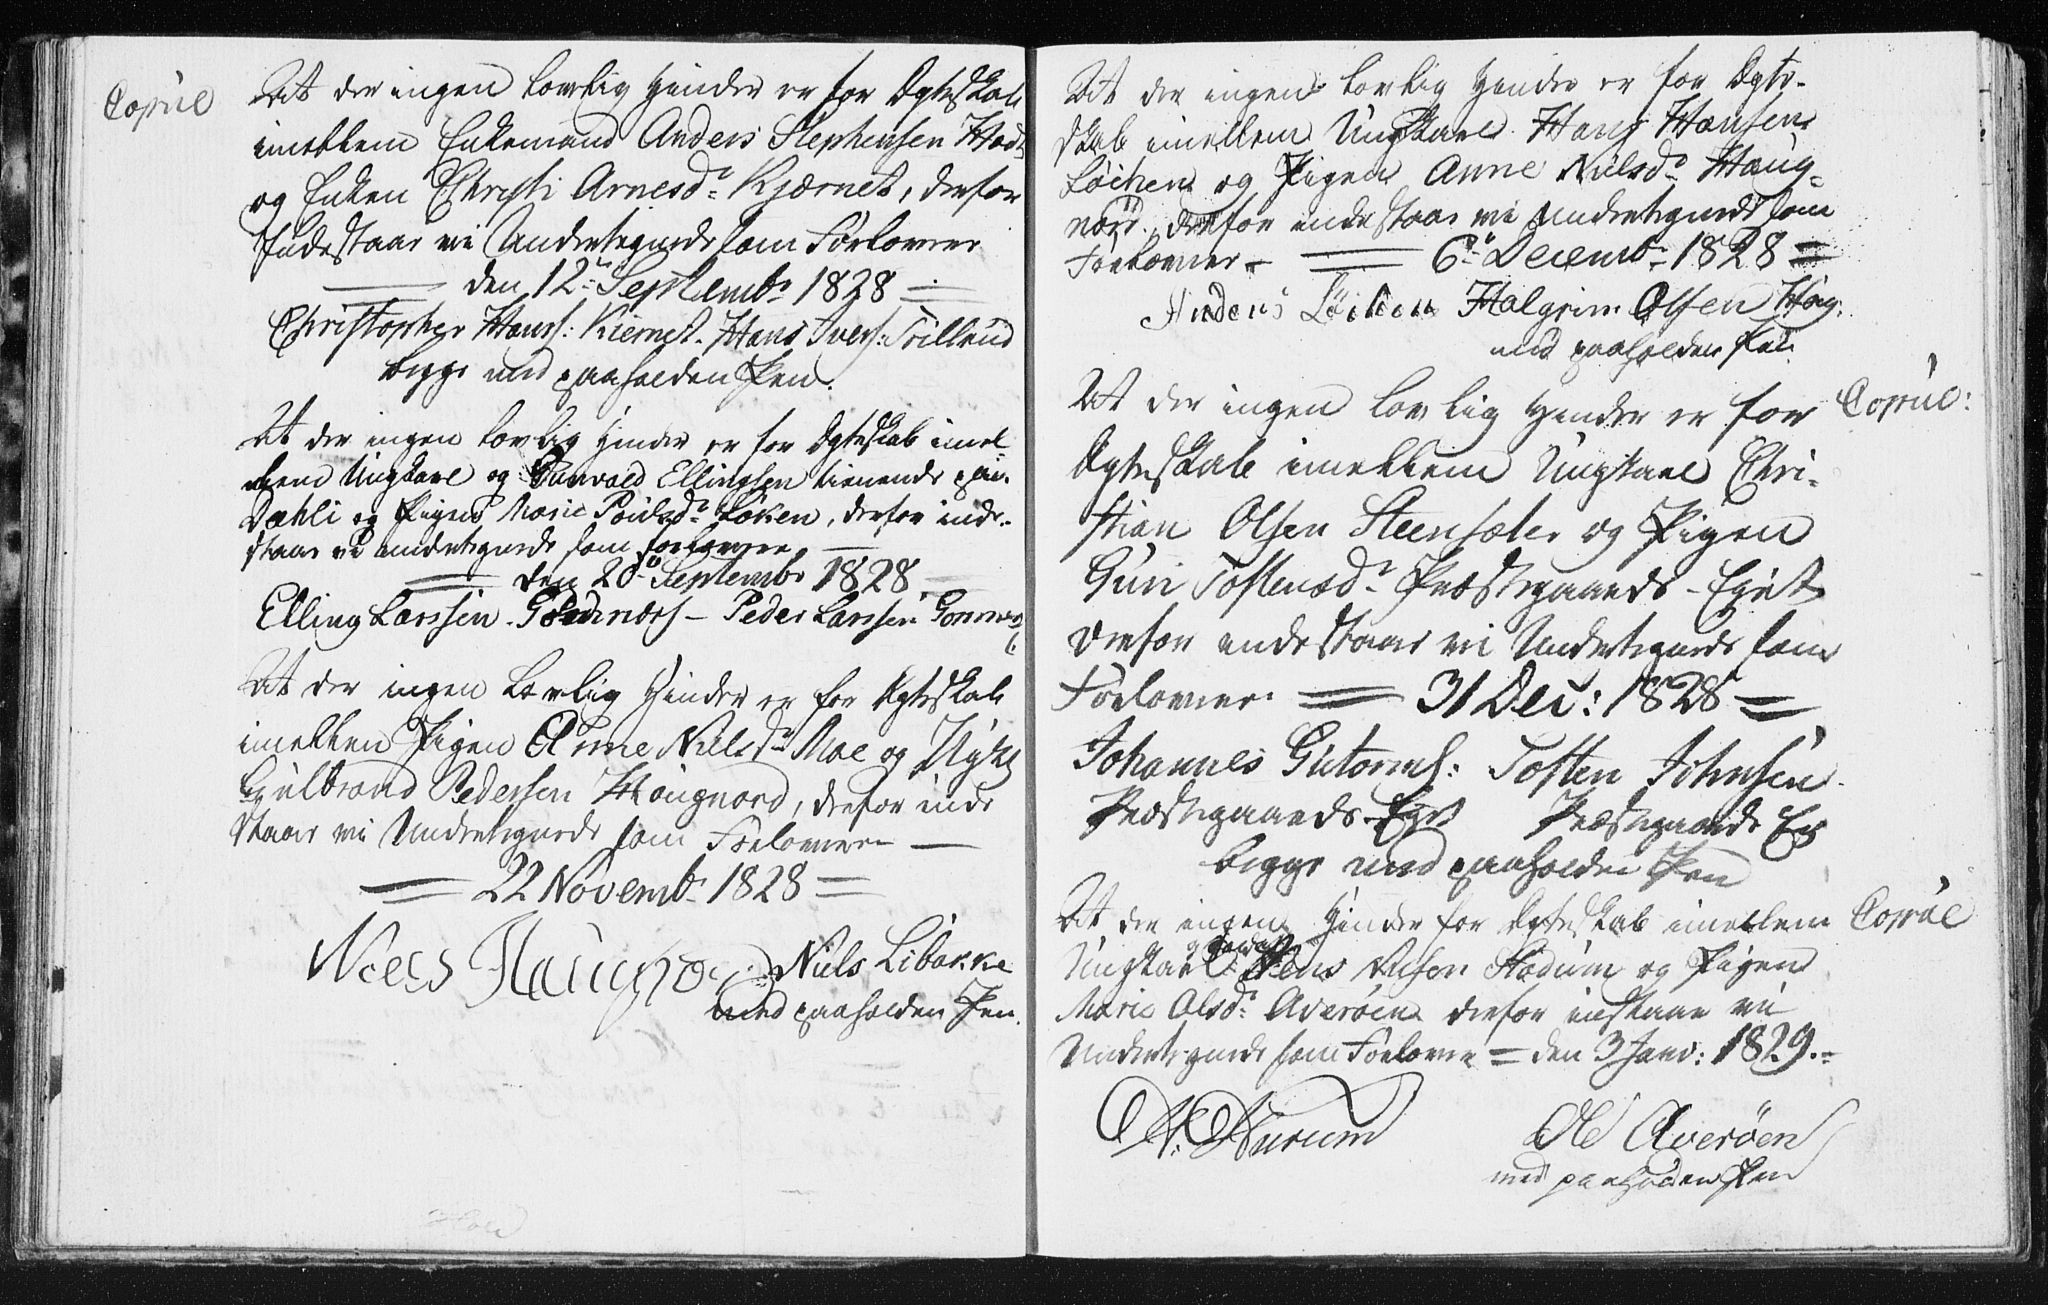 Copul
At der ingen lovlig Hinder er for Ægteskab
imellem Enkemand Anders Stephensen
og Enken Christi Arnesd. Kjærnet, derfor
Indestaar vi Undertegnede som Forlovere
den 12te Septembr 1828
Christopher Hans: Kiernet. Hans Ivers: Trillrud
begge med paaholden Pen.
At der ingen lovlig Hinder er for Ægteskab imel
lem Ungkarl og Ellingsen tienende paa
Dæhli og Pigen Marie Poulsdr Løken, derfor inde-
staar vi undertegnede som forlovere
den 20de Septembr 1828
Elling Larssen. - Peder Larssen
At der ingen Lovlig Hinder er for Ægteskab
imellem Pigen Anne Nielsdr Moe og
Gulbrand Pedersen Haugnord, derfor inde
staar vi Undertegnede som Forlovere
22 Novembr 1828
Niels Libakke
med paaholden Pen.
At der ingen lovlig Hinder er for Ægte-
skab imellem Ungkarl Hans Hansen
Løchen og Pigen Anne Nielsdr Haug-
nord. derfor indestaar vi Undertegnede som
Forlovere - 6te Decembr 1828
Anders Løiken Halgrim Olsen
med paaholden Pen
At der ingen lovlig Hinder er for Copul:
Ægteskab imellem Ungkarl Chri-
stian Olsen Steensæter og Pigen
Guri Tostensdr Præstegaards-Eiet
derfor indestaar vi Undertegnede som
Forlovere 31 Dec: 1828
Johannes Gutorms: Tosten Johnsen
Præstegaards-Eiet Præstegaards
begge med paaholden Pen
At der ingen Hinder for Ægteskab imellem Copul
Ungkarl og Pigen
Marie Olsdr Averøen derfor instaar vi
Undertegnede som Forlovere = den 3 Janv: 1829.
Ole Averøen
med paaholden Pen